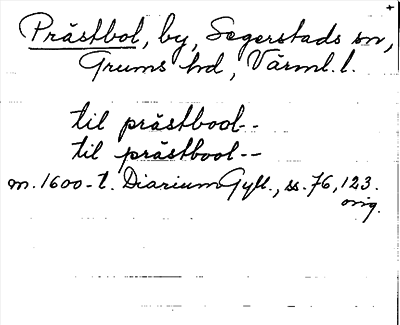 Prästbol, by, Segerstads sn,
Grums hd, Värml. l.
til prästbool--
til prästbool--
m. 1600-t. Diarium Gyll., ss. 76, 123.
orig.